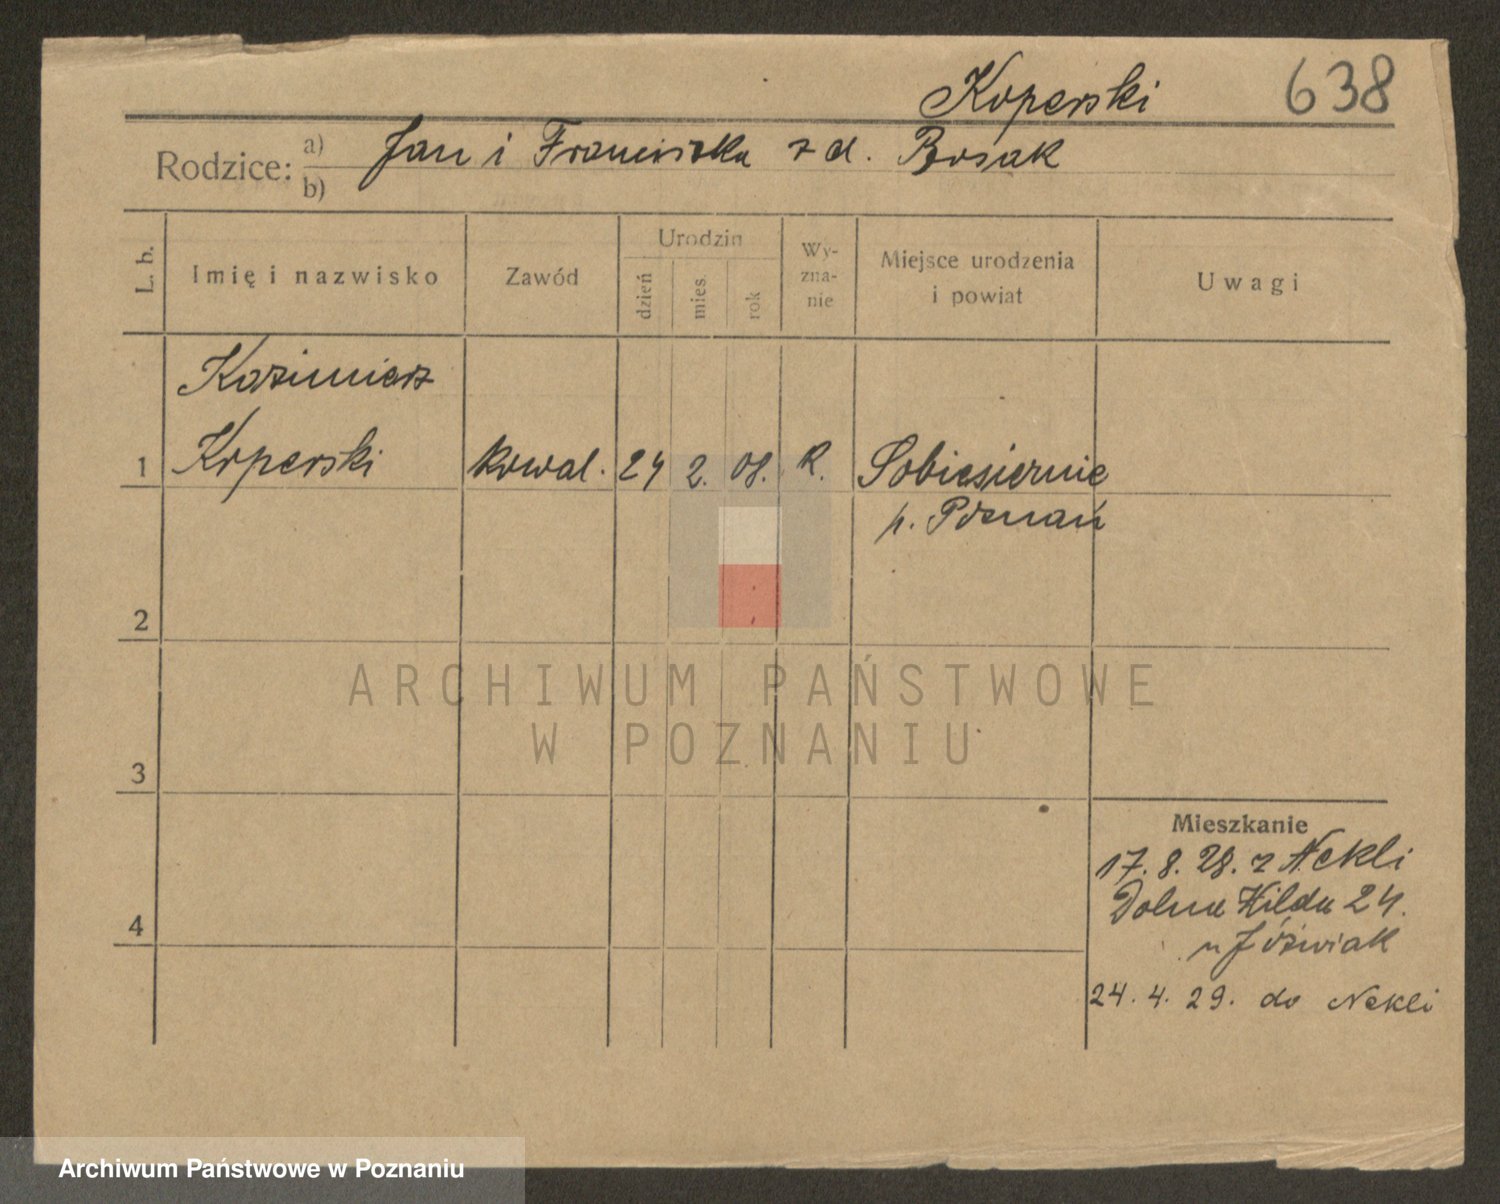 Koperski 638
Rodzice: a) Jan i Franciszka z d. Bosak
b)
L. b. Imię i nazwisko Zawód Urodzin dzień mies. rok Wy-zna-nie Miejsce urodzenia i powiat Uwagi
Kazimierz
1 Koperski kowal. 24 2. 08. R. Sobiesiernie
p. Poznań
2
3
4
Mieszkanie
17. 8. 28. z Nekli
Dolna Wilda 24.
u Jóźwiak
24. 4. 29. do Nekli
ARCHIWUM PAŃSTWOWE
W POZNANIU
Archiwum Państwowe w Poznaniu